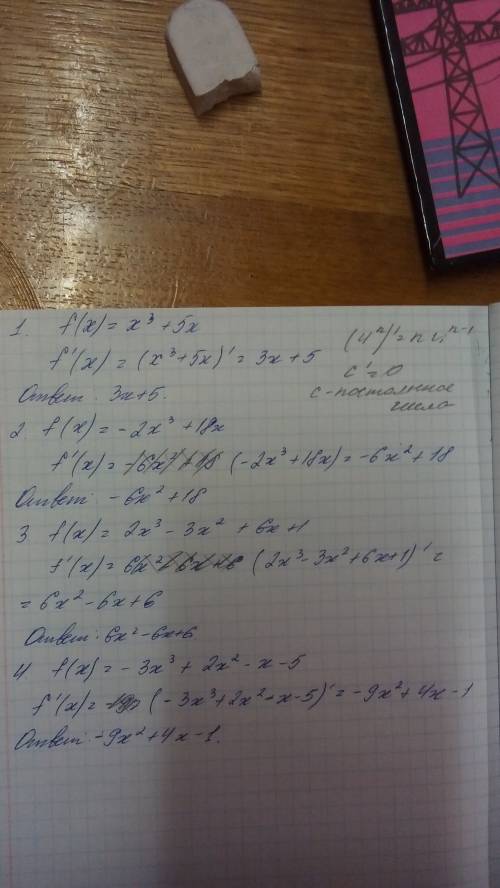 1. f(x) = x³ + 5x
f'(x) = (x³ + 5x)' = 3x + 5
Ответ: 3x + 5.
(uⁿ)' = n uⁿ⁻¹
c' = 0
c - постоянное
число
2 f(x) = -2x³ + 18x
f'(x) = (-2x³ + 18x) = -6x² + 18
Ответ: -6x² + 18
3 f(x) = 2x³ - 3x² + 6x + 1
f'(x) = (2x³ - 3x² + 6x + 1)' =
= 6x² - 6x + 6
Ответ: 6x² - 6x + 6
4 f(x) = -3x³ + 2x² - x - 5
f'(x) = (-3x³ + 2x² - x - 5)' = -9x² + 4x - 1
Ответ: -9x² + 4x - 1.